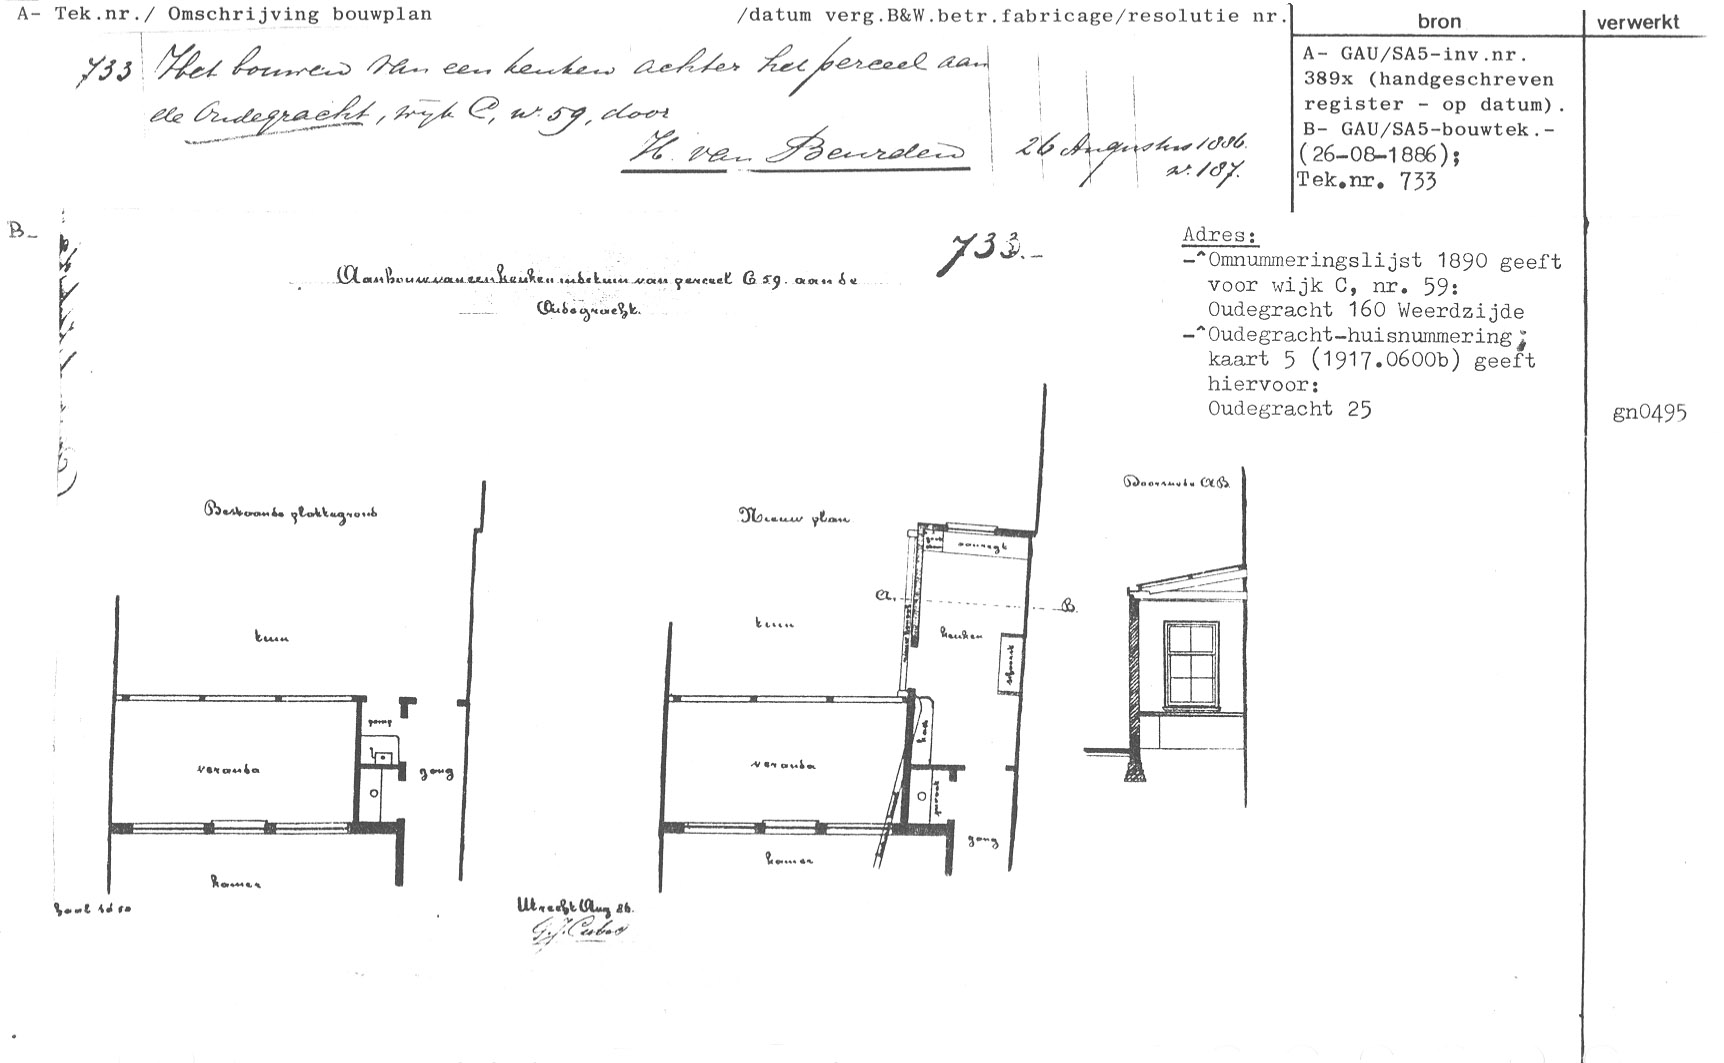 A- Tek.nr./ Omschrijving bouwplan /datum verg.B&W.betr.fabricage/resolutie nr.
bron
verwerkt
733 Het bouwen van een keuken achter het perceel aan
de Oudegracht, wijk C, nr. 59, door
H. van Beurden
26 Augustus 1886.
nr. 187.
A- GAU/SA5-inv.nr.
389x (handgeschreven
register - op datum).
B- GAU/SA5-bouwtek.-
(26-08-1886);
Tek.nr. 733
B-
733.-
Aanbouw van een keuken in de tuin van perceel C 59. aan de
Oudegracht.
Adres:
-^Omnummeringslijst 1890 geeft
voor wijk C, nr. 59:
Oudegracht 160 Weerdzijde
-^Oudegracht-huisnummering;
kaart 5 (1917.0600b) geeft
hiervoor:
Oudegracht 25
gn0495
Bestaande plattegrond
Nieuw plan
Doorsnede AB.
tuin
pomp
veranda
gang
kamer
aanregt
A.
B.
tuin
keuken
kast
veranda
privaat
gang
kamer
Schaal 1 à 50
Utrecht Aug 86.